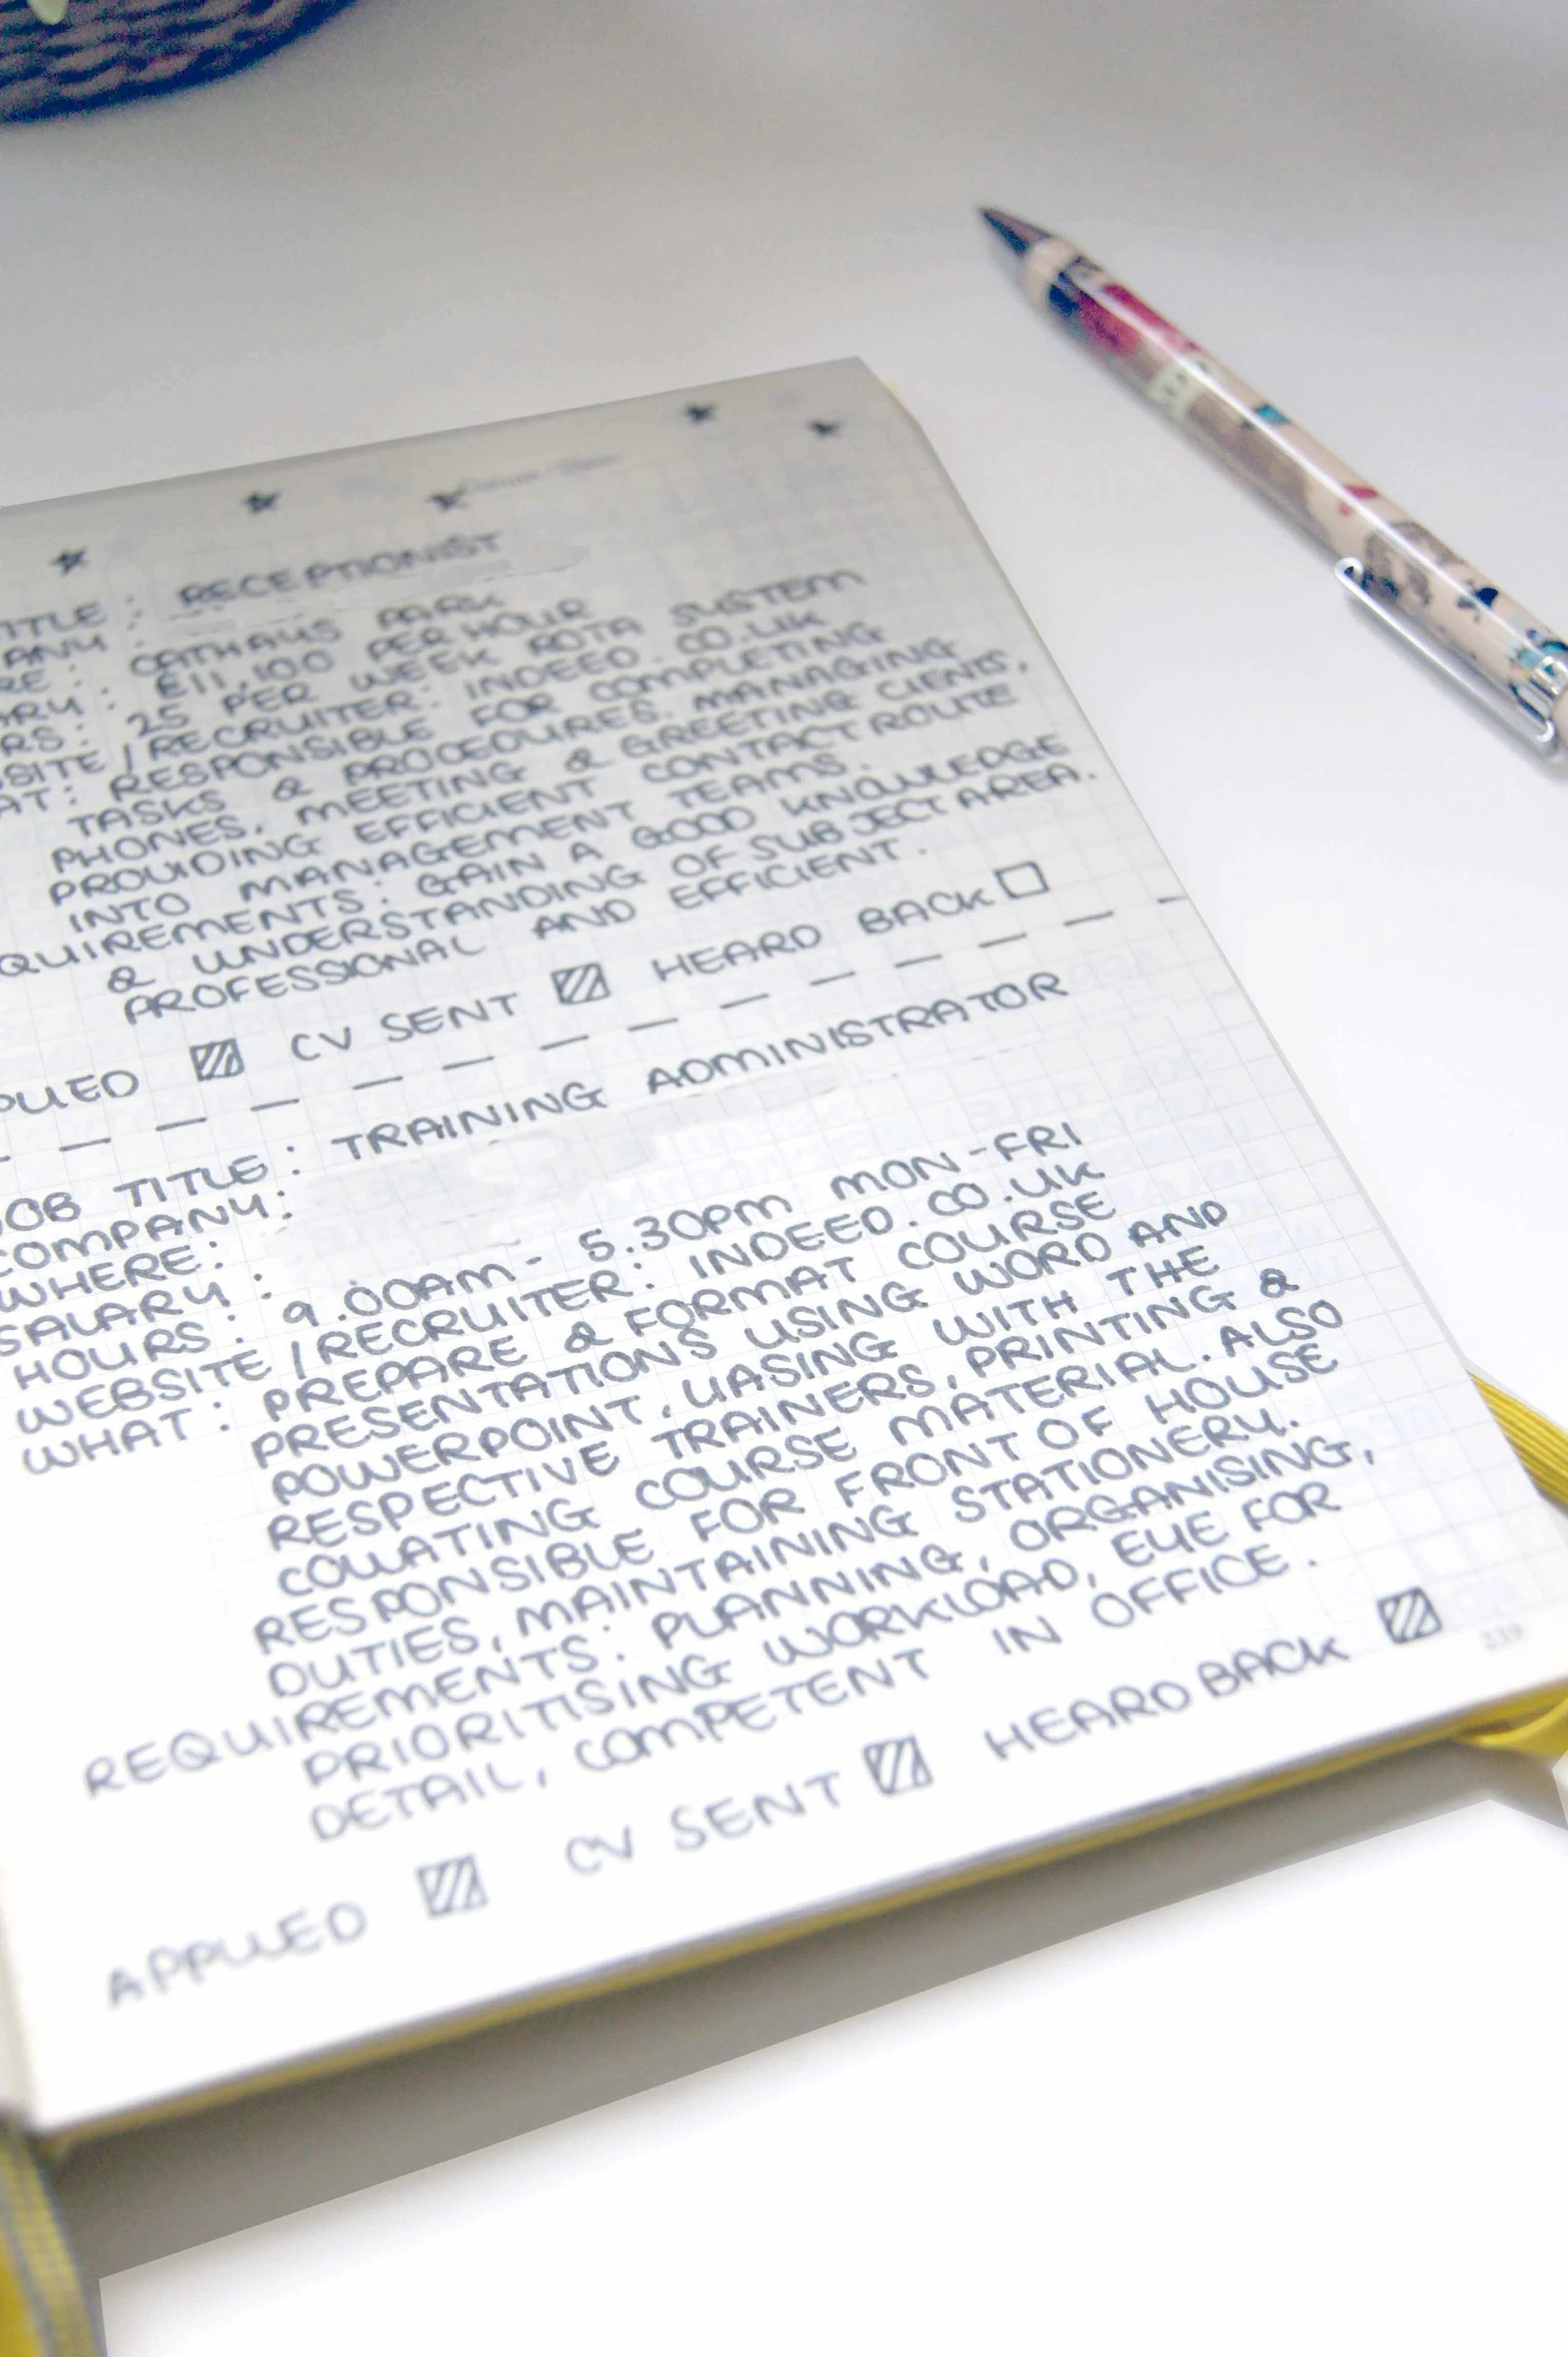 TITLE : RECEPTIONIST
ANY :
RE : CATHAYS PARK
ARY : £11,100 PER HOUR
RS : 25 PER WEEK ROTA SYSTEM
SITE / RECRUITER : INDEED.CO.UK
AT : RESPONSIBLE FOR COMPLETING
TASKS & PROCEDURES. MANAGING
PHONES, MEETING & GREETING CLIENTS,
PROVIDING EFFICIENT CONTACT ROUTE
INTO MANAGEMENT TEAMS.
QUIREMENTS : GAIN A GOOD KNOWLEDGE
& UNDERSTANDING OF SUBJECT AREA.
PROFESSIONAL AND EFFICIENT.
PLIED CV SENT HEARD BACK
JOB TITLE : TRAINING ADMINISTRATOR
COMPANY :
WHERE :
SALARY :
HOURS : 9.00AM - 5.30PM MON-FRI
WEBSITE / RECRUITER : INDEED.CO.UK
WHAT : PREPARE & FORMAT COURSE
PRESENTATIONS USING WORD AND
POWERPOINT, LIASING WITH THE
RESPECTIVE TRAINERS, PRINTING &
COLLATING COURSE MATERIAL. ALSO
RESPONSIBLE FOR FRONT OF HOUSE
DUTIES, MAINTAINING STATIONERY.
REQUIREMENTS : PLANNING, ORGANISING,
PRIORITISING WORKLOAD, EYE FOR
DETAIL, COMPETENT IN OFFICE.
APPLIED CV SENT HEARD BACK
239